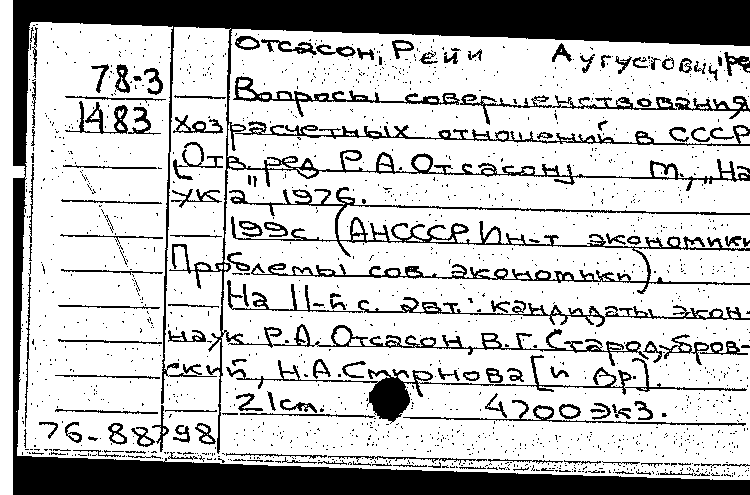 Отсасон, Рейи Аугустович, ре
78-3
Вопросы совершенствования
1483 хозрасчетных отношений в СССР
[Отв. ред. Р.А. Отсасон]. М., „На
ука", 1976.
199с. (АНСССР. Ин-т экономики
Проблемы сов. экономики).
На 11-й с. авт.: кандидаты экон-
наук Р.А. Отсасон, В.Г. Стародубров-
ский, Н.А. Смирнова [и др].
21см. 4700 экз.
76-88798